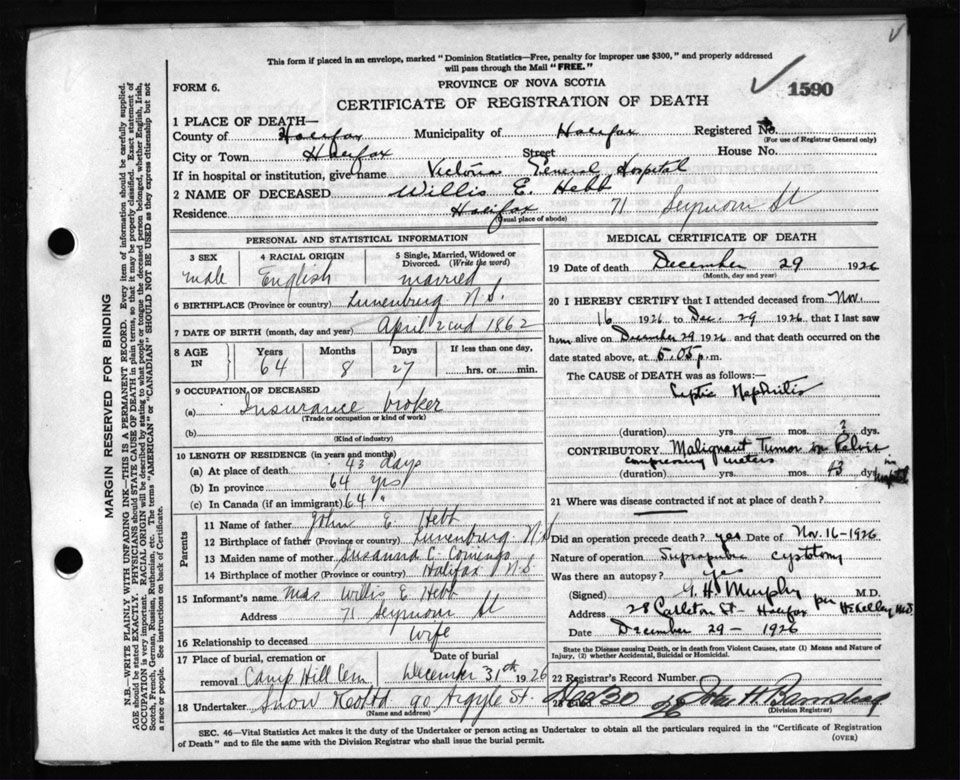 This form if placed in an envelope, marked "Dominion Statistics—Free, penalty for improper use $300," and properly addressed
will pass through the Mail "FREE."
FORM 6.
PROVINCE OF NOVA SCOTIA
1590
CERTIFICATE OF REGISTRATION OF DEATH
1 PLACE OF DEATH—
County of Halifax Municipality of Halifax Registered No.
(For use of Registrar General only)
City or Town Halifax Street House No.
If in hospital or institution, give name Victoria General Hospital
2 NAME OF DECEASED Willis E. Hebb
Residence Halifax 71 Seymour St
(Usual place of abode)
MARGIN RESERVED FOR BINDING
N.B.—WRITE PLAINLY WITH UNFADING INK—THIS IS A PERMANENT RECORD. Every item of information should be carefully supplied.
AGE should be stated EXACTLY. PHYSICIANS should STATE CAUSE OF DEATH in plain terms, so that it may be properly classified. Exact statement of
OCCUPATION is very important. RACIAL ORIGIN will be described by stating to what people or tongue the deceased person belonged, whether English, Irish,
Scotch, French, German, Russian, Ruthenian, etc. The terms "AMERICAN" or "CANADIAN" SHOULD NOT BE USED as they express citizenship but not
a race or people. See instructions on back of Certificate.
PERSONAL AND STATISTICAL INFORMATION
3 SEX
male
4 RACIAL ORIGIN
English
5 Single, Married, Widowed or
Divorced. (Write the word)
married
6 BIRTHPLACE (Province or country) Lunenburg N.S.
7 DATE OF BIRTH (month, day and year) April 2nd 1862
8 AGE IN
Years Months Days If less than one day,
64 8 27 hrs. or min.
9 OCCUPATION OF DECEASED
(a) Insurance broker
(Trade or occupation or kind of work)
(b)
(Kind of industry)
10 LENGTH OF RESIDENCE (in years and months)
(a) At place of death 43 days
(b) In province 64 yrs
(c) In Canada (if an immigrant) 64 "
Parents
11 Name of father John E. Hebb
12 Birthplace of father (Province or country) Lunenburg N.S
13 Maiden name of mother Susanna C.
14 Birthplace of mother (Province or country) Halifax N.S.
15 Informant's name Mrs Willis E. Hebb
Address 71 Seymour St
16 Relationship to deceased Wife
17 Place of burial, cremation or Date of burial
removal Camp Hill Cem December 31th 1926
18 Undertaker Snow & Co Ltd 90 Argyle St.
(Name and address)
MEDICAL CERTIFICATE OF DEATH
19 Date of death December 29 1926
(Month, day and year)
20 I HEREBY CERTIFY that I attended deceased from Nov.
16 1926 to Dec. 29 1926, that I last saw
him alive on December 29 1926 and that death occurred on the
date stated above, at 5.05 p.m.
The CAUSE of DEATH was as follows:—
Septic Nephritis
(duration) yrs. mos. dys.
CONTRIBUTORY Malignant Tumor in Pelvis
compressing ureters
(duration) yrs. mos. 43 dys in hospital
21 Where was disease contracted if not at place of death?
Did an operation precede death? yes Date of Nov. 16–1926
Nature of operation Suprapubic cystotomy
Was there an autopsy? yes
(Signed) G. H. Murphy M.D.
Address 28 Carleton St– Halifax per
Date December 29 – 1926
State the Disease causing Death, or in death from Violent Causes, state (1) Means and Nature of
Injury, (2) whether Accidental, Suicidal or Homicidal.
22 Registrar's Record Number
Dec 30 26
(Division Registrar)
SEC. 46—Vital Statistics Act makes it the duty of the Undertaker or person acting as Undertaker to obtain all the particulars required in the "Certificate of Registration
of Death" and to file the same with the Division Registrar who shall issue the burial permit.
(OVER)